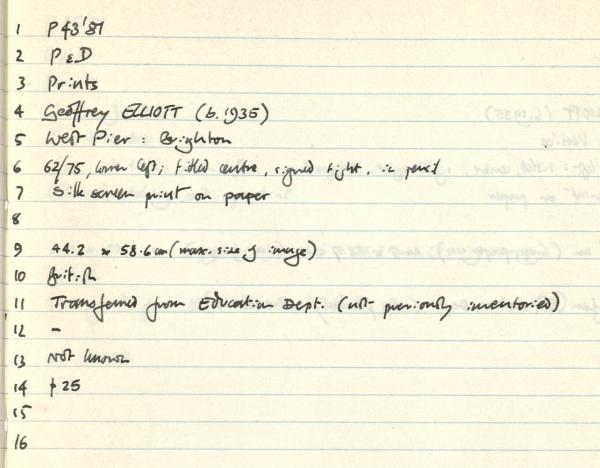 1 P43'81
2 P & D
3 Prints
4 Geoffrey ELLIOTT (b. 1935)
5 West Pier : Brighton
6 62/75, lower left; titled centre, signed right, in pencil
7 Silk screen print on paper
8
9 44.2 x 58.6 cm (max. size of image)
10 British
11 Transferred from Education Dept. (not previously inventoried)
12 –
13 Not known
14 25
15
16